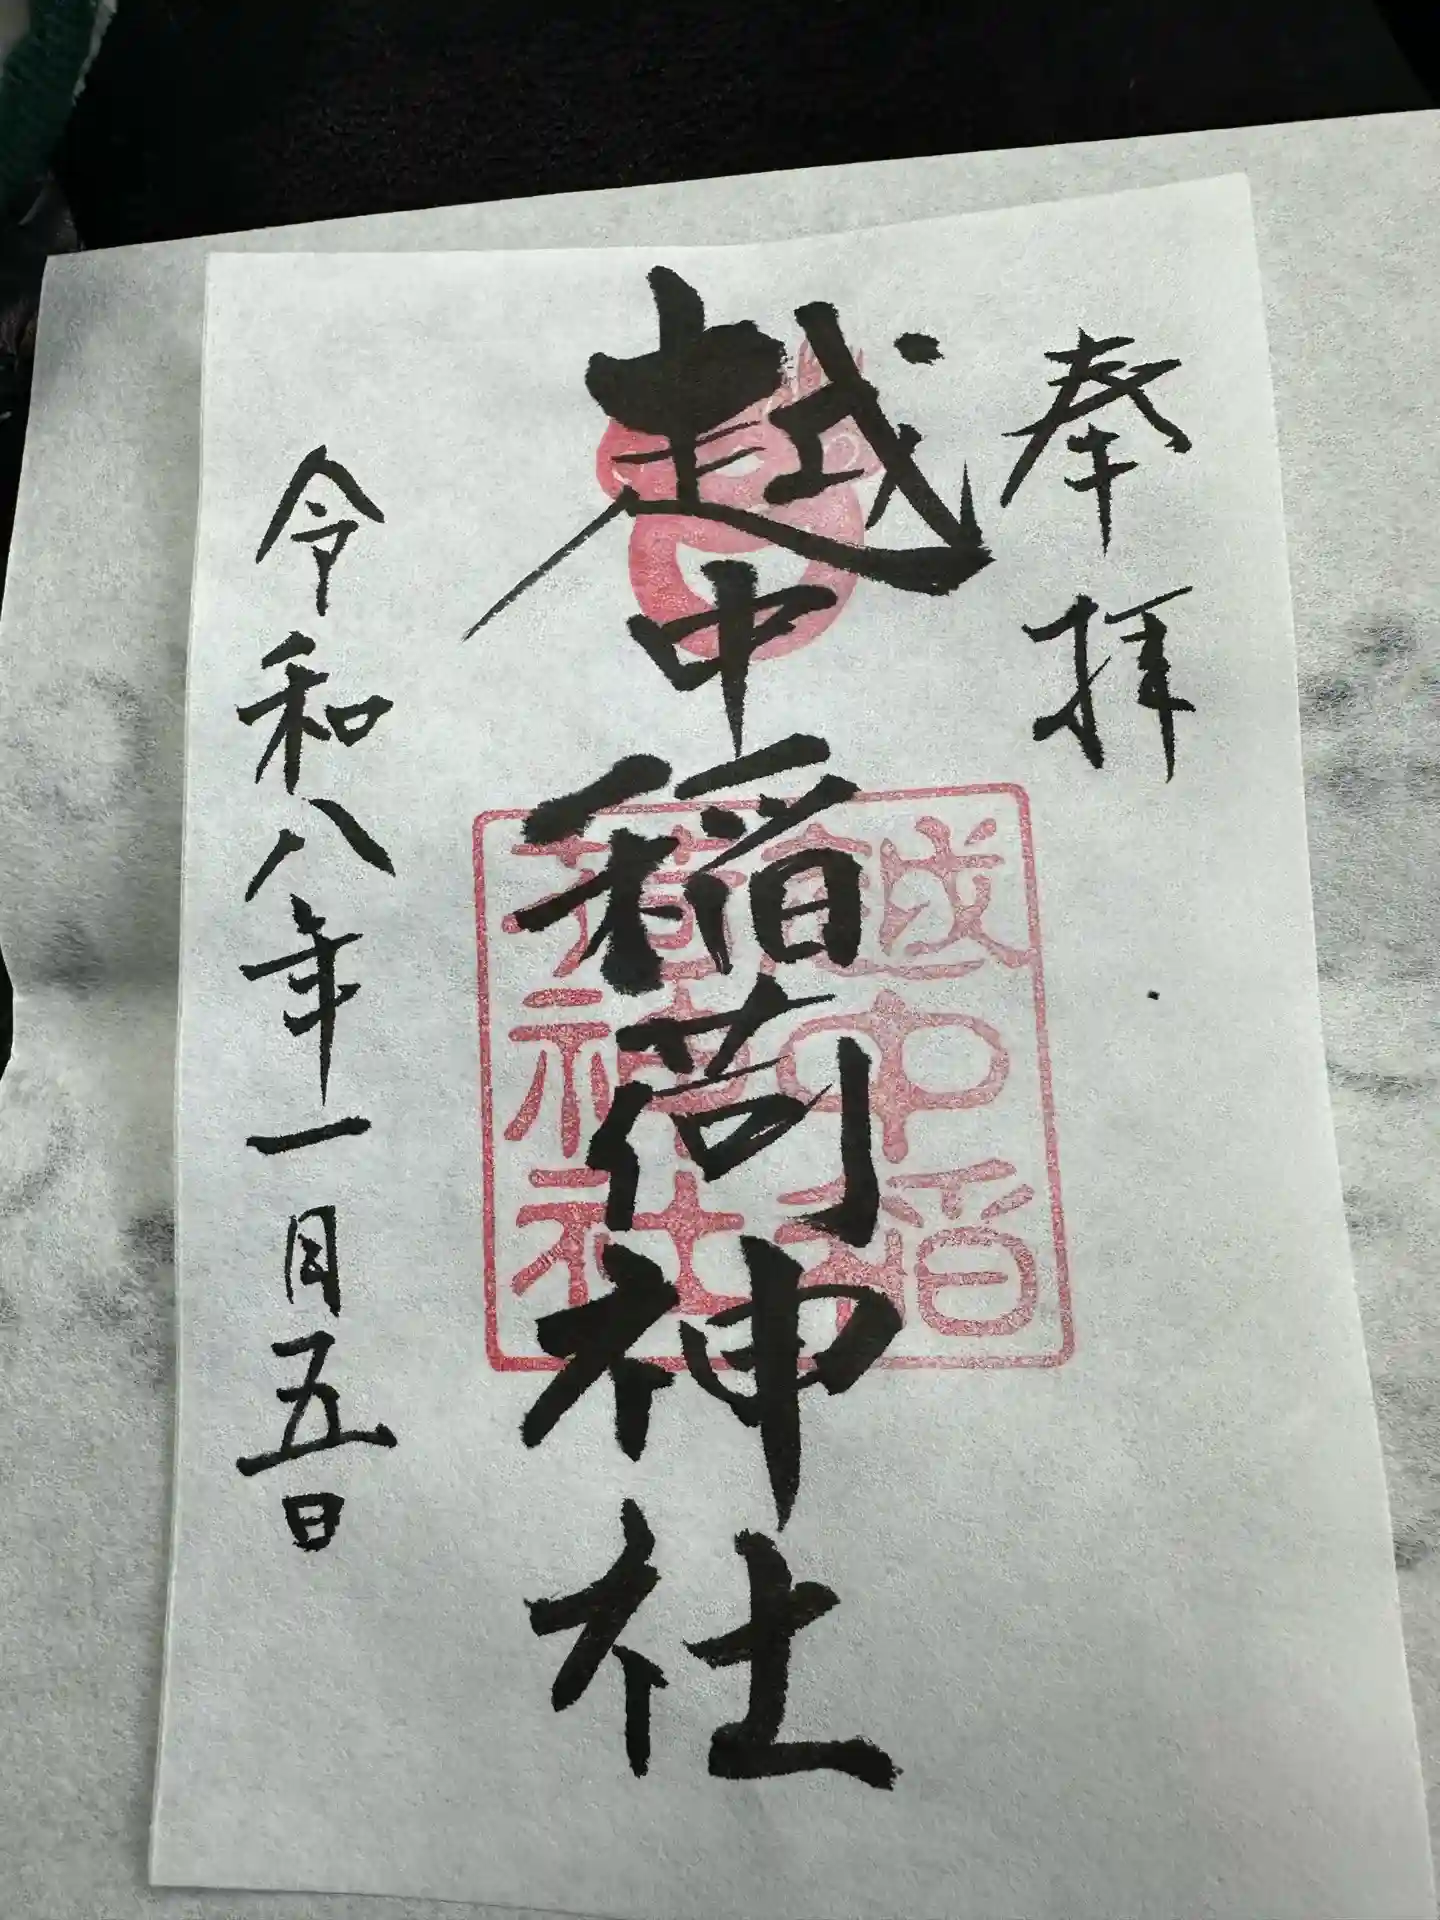 奉拝
越中稲荷神社
越中稲
荷神社
令和八年一月五日